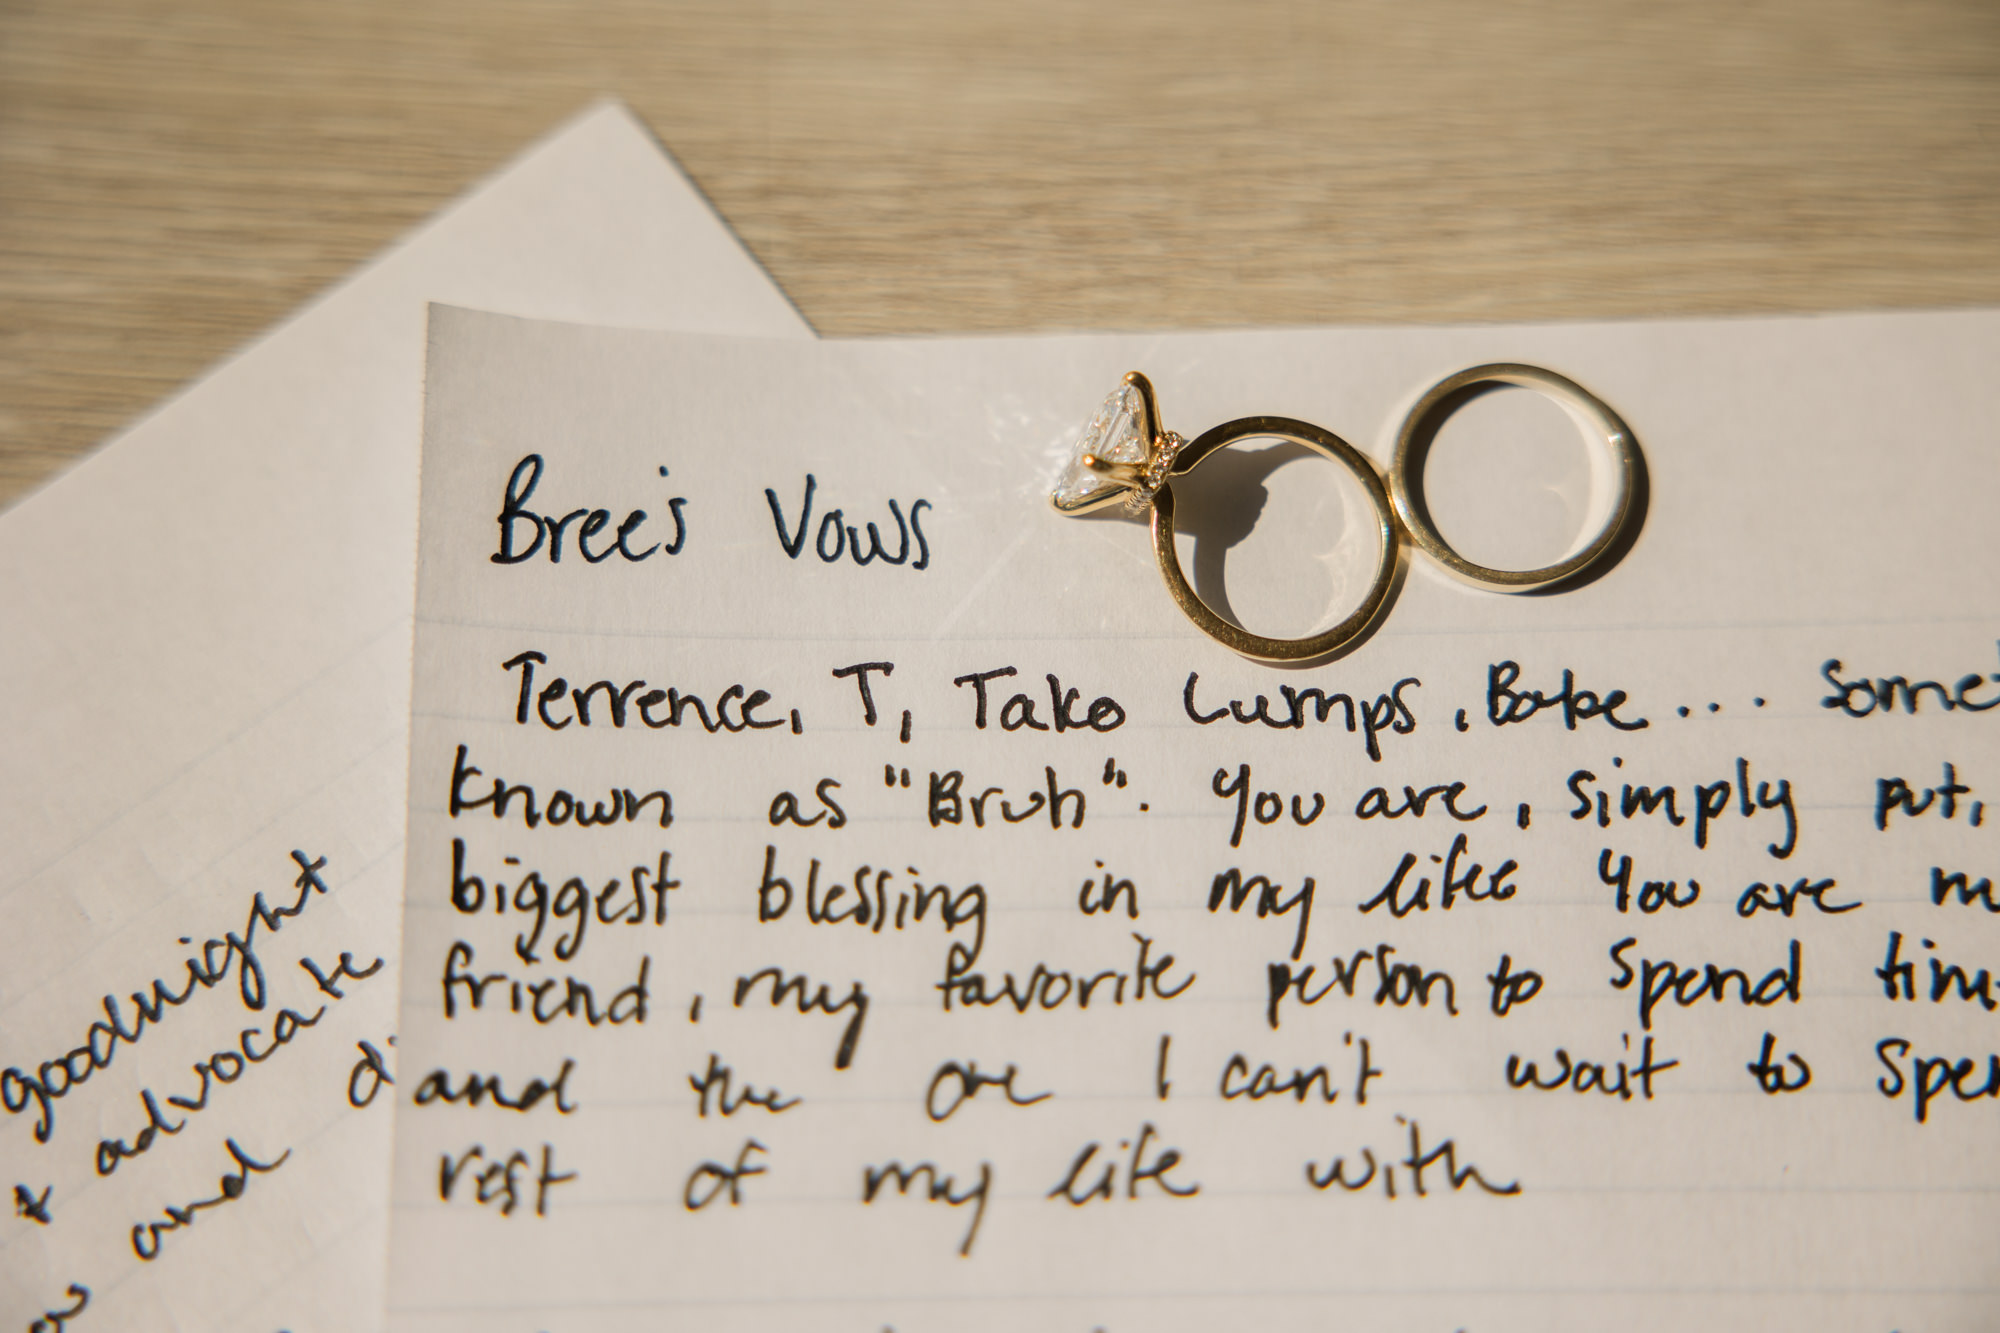 Bree's Vows
Terrence, T, Tako Lumps, Babe... Somet
known as "Bruh". You are, simply put,
biggest blessing in my life. You are m
friend, my favorite person to spend tim
and the one I can't wait to spen
rest of my life with
goodnight
advocate
and di